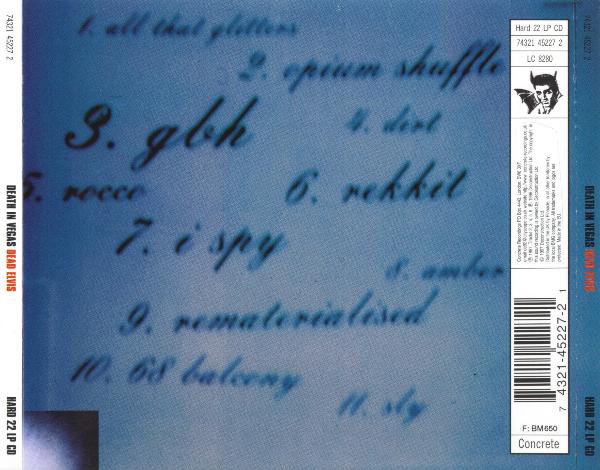 1. all that glitters
2. opium shuffle
3. gbh
4. dirt
5. rocco
6. rekkit
7. i spy
8. amber
9. rematerialised
10. 68 balcony
11. sly
74321 45227 2
DEATH IN VEGAS DEAD ELVIS
HARD 22 LP CD
Hard 22 LP CD
74321 45227 2
LC 8280
7 4321-45227-2 1
F: BM650
Concrete
74321 45227 2
DEATH IN VEGAS DEAD ELVIS
HARD 22 LP CD